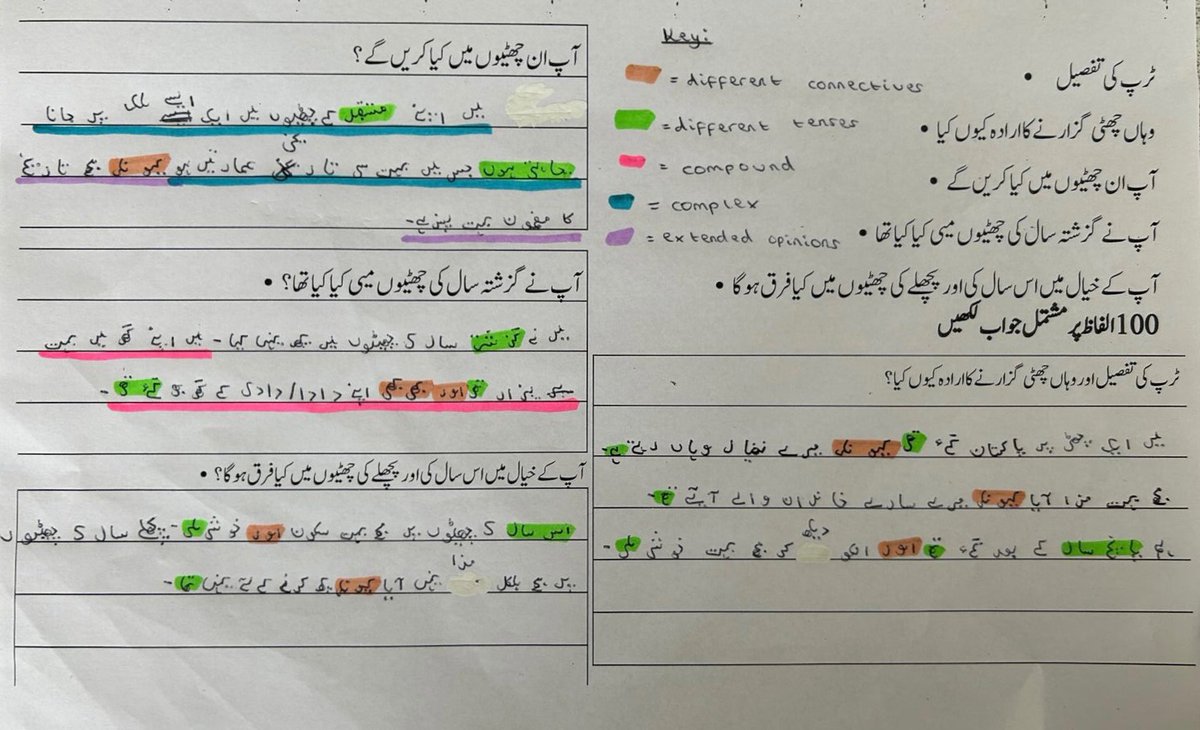 Key:
= different connectives
= different tenses
= compound
= complex
= extended opinions
• ٹرپ کی تفصیل
• وہاں چھٹی گزارنے کا ارادہ کیوں کیا
• آپ ان چھٹیوں میں کیا کریں گے
• آپ نے گزشتہ سال کی چھٹیوں میں کیا کیا تھا
• آپ کے خیال میں اس سال کی اور پچھلے کی چھٹیوں میں کیا فرق ہو گا
100 الفاظ پر مشتمل جواب لکھیں
ٹرپ کی تفصیل اور وہاں چھٹی گزارنے کا ارادہ کیوں کیا؟
میں ایک چھٹی پر پاکستان گئی تھی کیونکہ میرے ننھیال وہاں رہتے ہے-
مجھے بہت مزا آیا کیونکہ میرے سارے خاندان والے آیے تھے-
ہم پانچ سال کے بعد گئے تھے اور انکو دیکھ کر مجھے بہت خوشی ملی-
آپ ان چھٹیوں میں کیا کریں گے؟
میں اپنے مستقبل کے چھٹیوں میں ایک ایسے ملک پر جانا
چاہتی ہوں جس میں بہت سی تاریخی عمارتیں ہو کیونکہ مجھے تاریخ
کا مضمون بہت پسند ہے-
آپ نے گزشتہ سال کی چھٹیوں میں کیا کیا تھا؟ •
میں نے گزشتہ سال کی چھٹیوں میں کچھ نہیں کیا- میں اپنے گھر میں بہت
تھی اور کبھی کبھی اپنے دادا/دادی کے گھر گئے تھے-
آپ کے خیال میں اس سال کی اور پچھلے کی چھٹیوں میں کیا فرق ہو گا؟ •
اس سال کی چھٹیوں پر مجھے بہت سکون اور خوشی ملی- پچھلے سال کی چھٹیوں
پر مجھے بلکل مزا نہیں آیا کیونکہ کچھ کرنے کے لئے نہیں تھا-